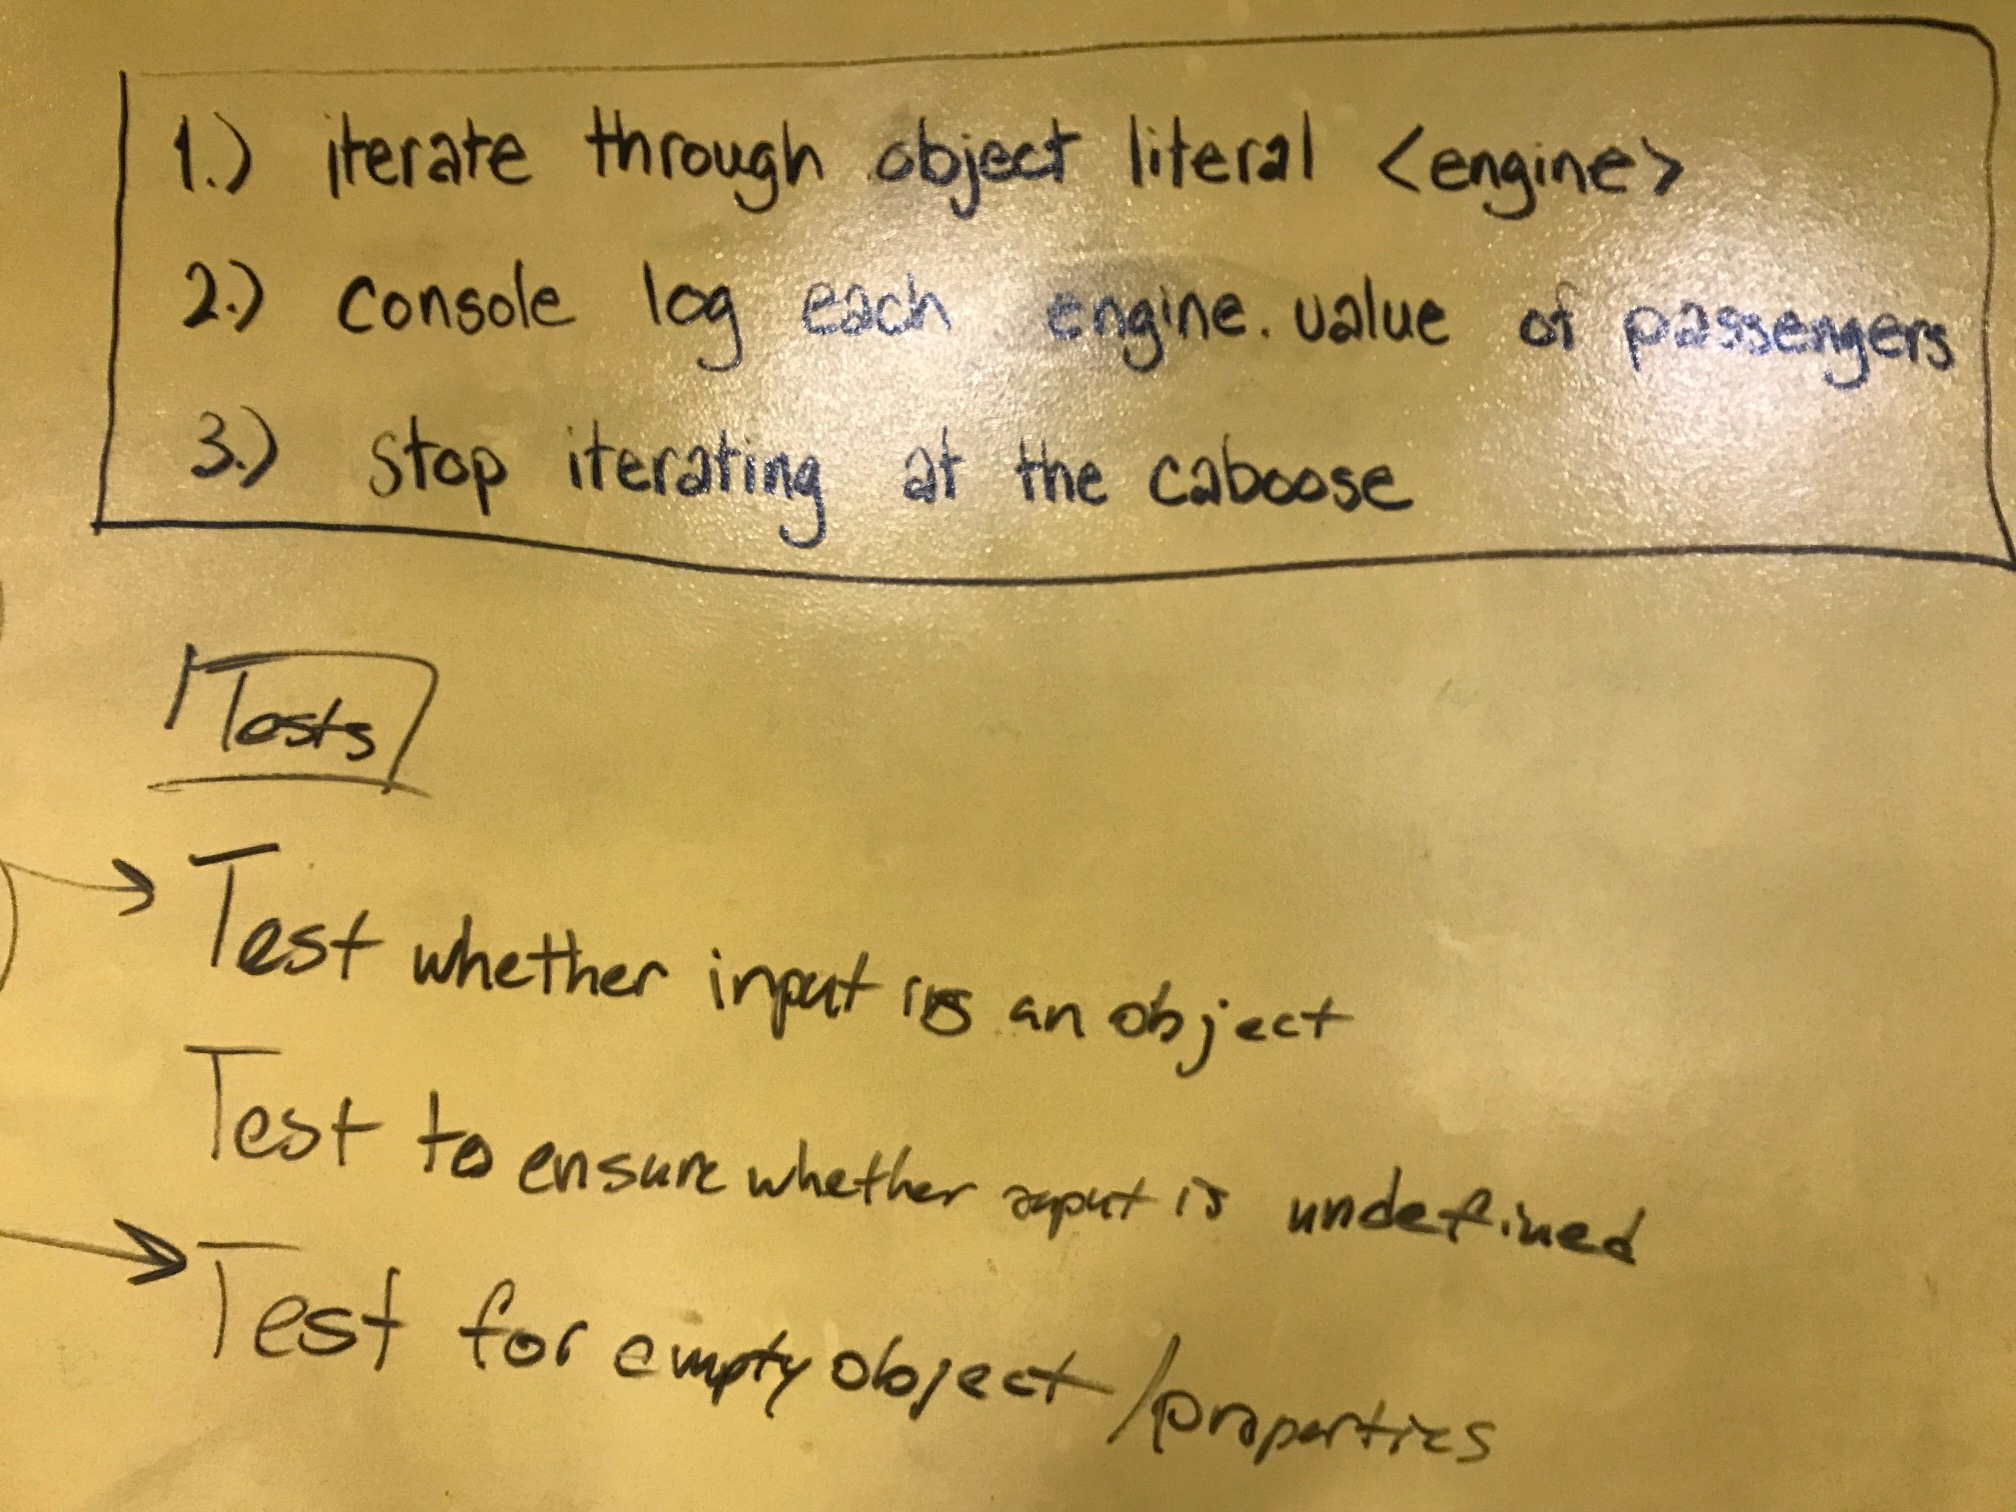 1.) iterate through object literal <engine>
2.) console log each engine.value of passengers
3.) stop iterating at the caboose
Tests
Test whether input is an object
Test to ensure whether input is undefined
Test for empty object/properties